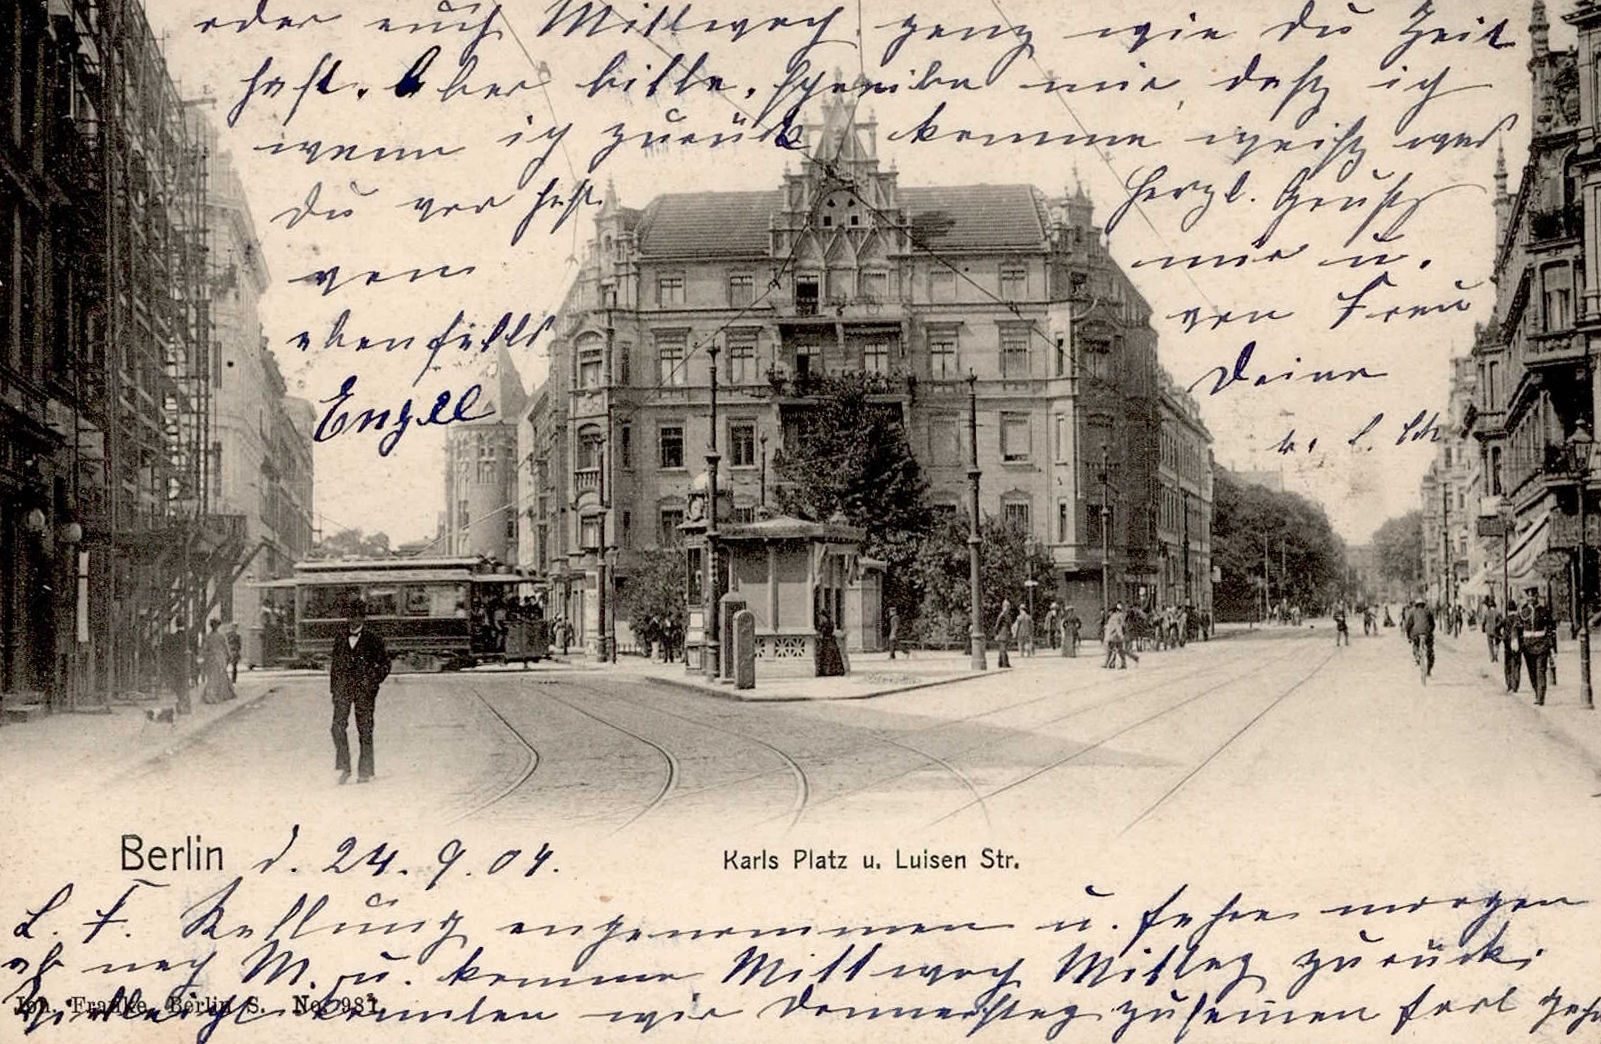 oder auch Mittwoch ganz wie du Zeit
hast. Aber bitte, schreibe mir, daß ich
wenn ich zurück komme weiß was
du vor hast.
Herzl. Gruß
von
mir u.
ebenfalls
von Frau
Engel
Deine
Berlin d. 24.9.04.
Karls Platz u. Luisen Str.
L. F. Stellung angenommen u. fahre morgen
ab nach M. u. komme Mittwoch Mittag zurück.
Joh. Franke, Berlin S. No 931
Vielleicht könnten wir Donnerstag zusammen fort gehn